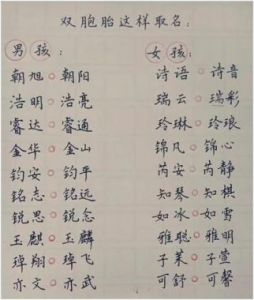 双胞胎这样取名：
男孩： 女孩：
朝旭○朝阳 诗语○诗音
浩明○浩亮 瑞云○瑞彩
睿达○睿通 玲琳○玲琅
金华○金山 锦凡○锦心
钧安○钧平 芮安○芮静
铭志○铭远 知琴○知棋
锐思○锐念 如冰○如雪
玉麒○玉麟 雅聪○雅明
琸翔○琸飞 子茱○子萱
亦文○亦武 可舒○可馨